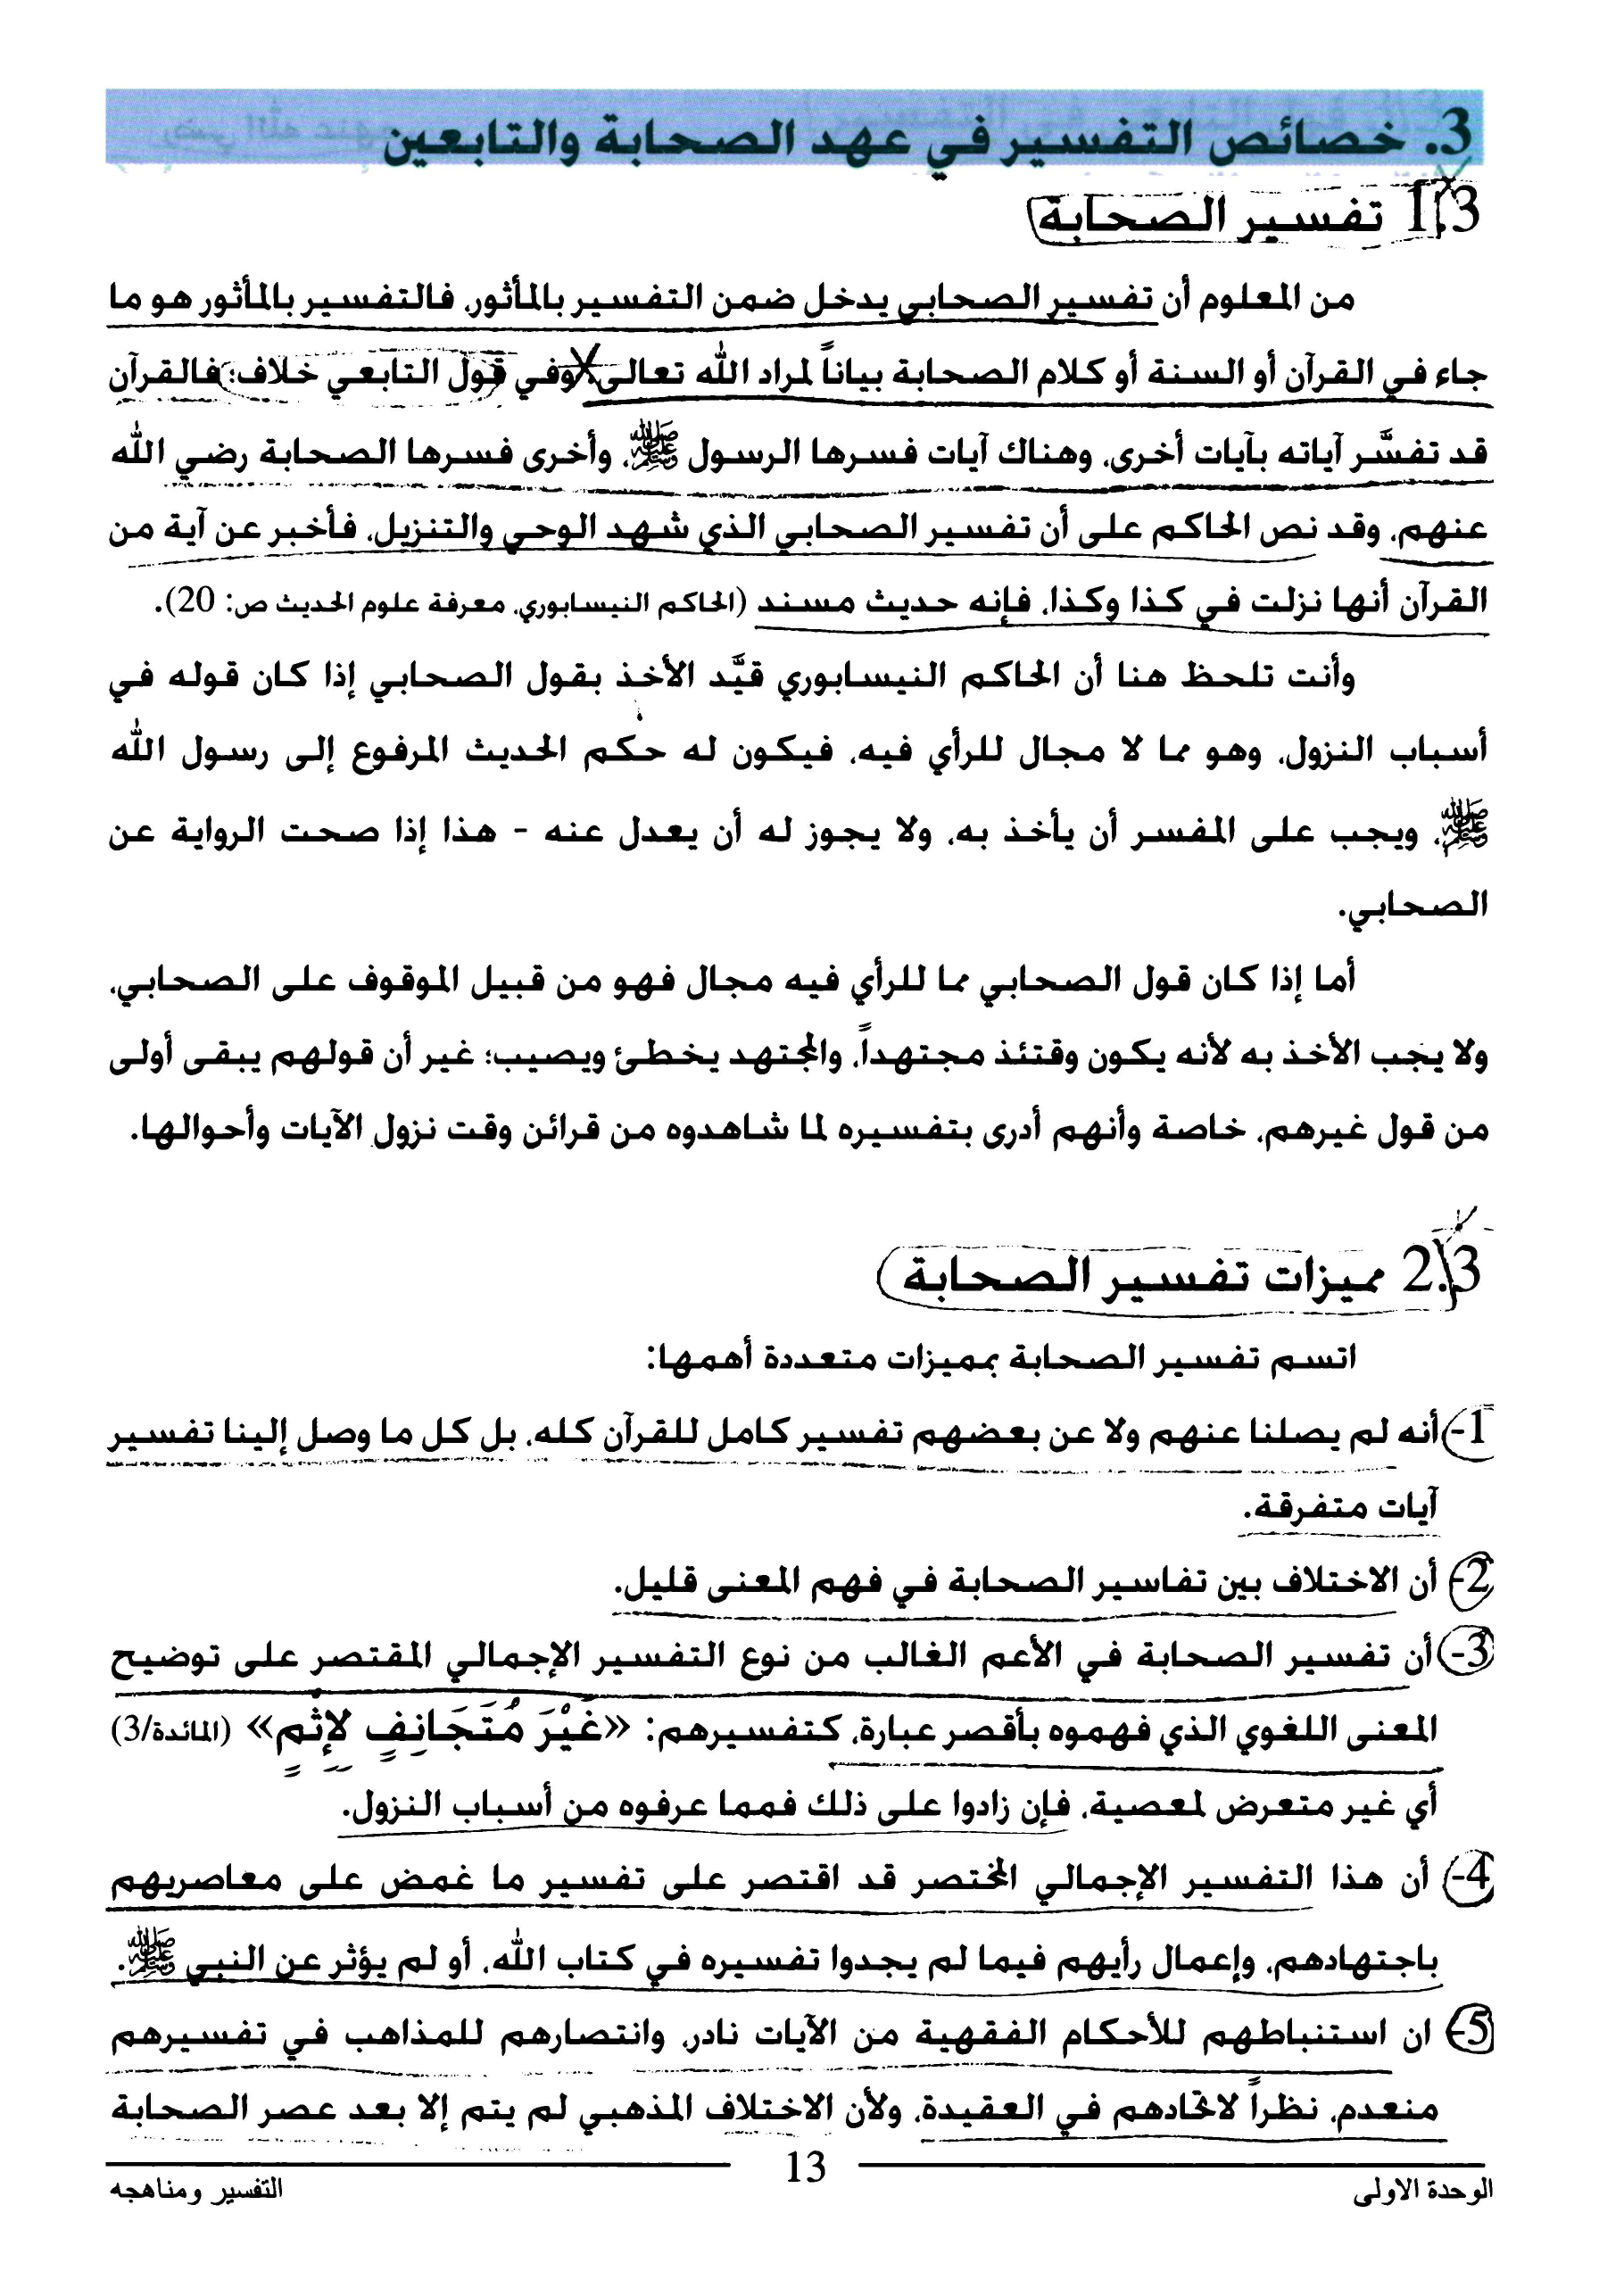 3. خصائص التفسير في عهد الصحابة والتابعين
1.3 تفسير الصحابة
من المعلوم أن تفسير الصحابي يدخل ضمن التفسير بالمأثور، فالتفسير بالمأثور هو ما
جاء في القرآن أو السنة أو كلام الصحابة بياناً لمراد الله تعالى، وفي قول التابعي خلاف؛ فالقرآن
قد تفسَّر آياته بآيات أخرى، وهناك آيات فسرها الرسول ﷺ، وأخرى فسرها الصحابة رضي الله
عنهم، وقد نص الحاكم على أن تفسير الصحابي الذي شهد الوحي والتنزيل، فأخبر عن آية من
القرآن أنها نزلت في كذا وكذا، فإنه حديث مسند (الحاكم النيسابوري، معرفة علوم الحديث ص: 20).
وأنت تلحظ هنا أن الحاكم النيسابوري قيَّد الأخذ بقول الصحابي إذا كان قوله في
أسباب النزول، وهو مما لا مجال للرأي فيه، فيكون له حكم الحديث المرفوع إلى رسول الله
ﷺ، ويجب على المفسر أن يأخذ به، ولا يجوز له أن يعدل عنه - هذا إذا صحت الرواية عن
الصحابي.
أما إذا كان قول الصحابي مما للرأي فيه مجال فهو من قبيل الموقوف على الصحابي،
ولا يجب الأخذ به لأنه يكون وقتئذ مجتهداً، والمجتهد يخطئ ويصيب؛ غير أن قولهم يبقى أولى
من قول غيرهم، خاصة وأنهم أدرى بتفسيره لما شاهدوه من قرائن وقت نزول الآيات وأحوالها.
2.3 مميزات تفسير الصحابة
اتسم تفسير الصحابة بمميزات متعددة أهمها:
1- أنه لم يصلنا عنهم ولا عن بعضهم تفسير كامل للقرآن كله، بل كل ما وصل إلينا تفسير
آيات متفرقة.
2- أن الاختلاف بين تفاسير الصحابة في فهم المعنى قليل.
3- أن تفسير الصحابة في الأعم الغالب من نوع التفسير الإجمالي المقتصر على توضيح
المعنى اللغوي الذي فهموه بأقصر عبارة، كتفسيرهم: «غَيْرَ مُتَجَانِفٍ لِإِثْمٍ» (المائدة/3)
أي غير متعرض لمعصية، فإن زادوا على ذلك فمما عرفوه من أسباب النزول.
4- أن هذا التفسير الإجمالي المختصر قد اقتصر على تفسير ما غمض على معاصريهم
باجتهادهم، وإعمال رأيهم فيما لم يجدوا تفسيره في كتاب الله، أو لم يؤثر عن النبي ﷺ.
5- ان استنباطهم للأحكام الفقهية من الآيات نادر، وانتصارهم للمذاهب في تفسيرهم
منعدم، نظراً لاتحادهم في العقيدة، ولأن الاختلاف المذهبي لم يتم إلا بعد عصر الصحابة
13
الوحدة الاولى
التفسير ومناهجه